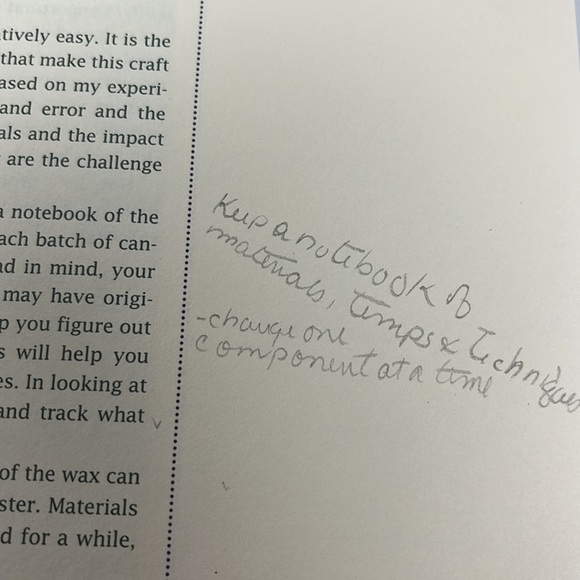 tively easy. It is the
that make this craft
ased on my experi-
and error and the
als and the impact
are the challenge
a notebook of the
ach batch of can-
nd in mind, your
may have origi-
p you figure out
s will help you
es. In looking at
and track what
of the wax can
ster. Materials
d for a while,
Keep a notebook of
materials, temps & Techniques
-change one
component at a time